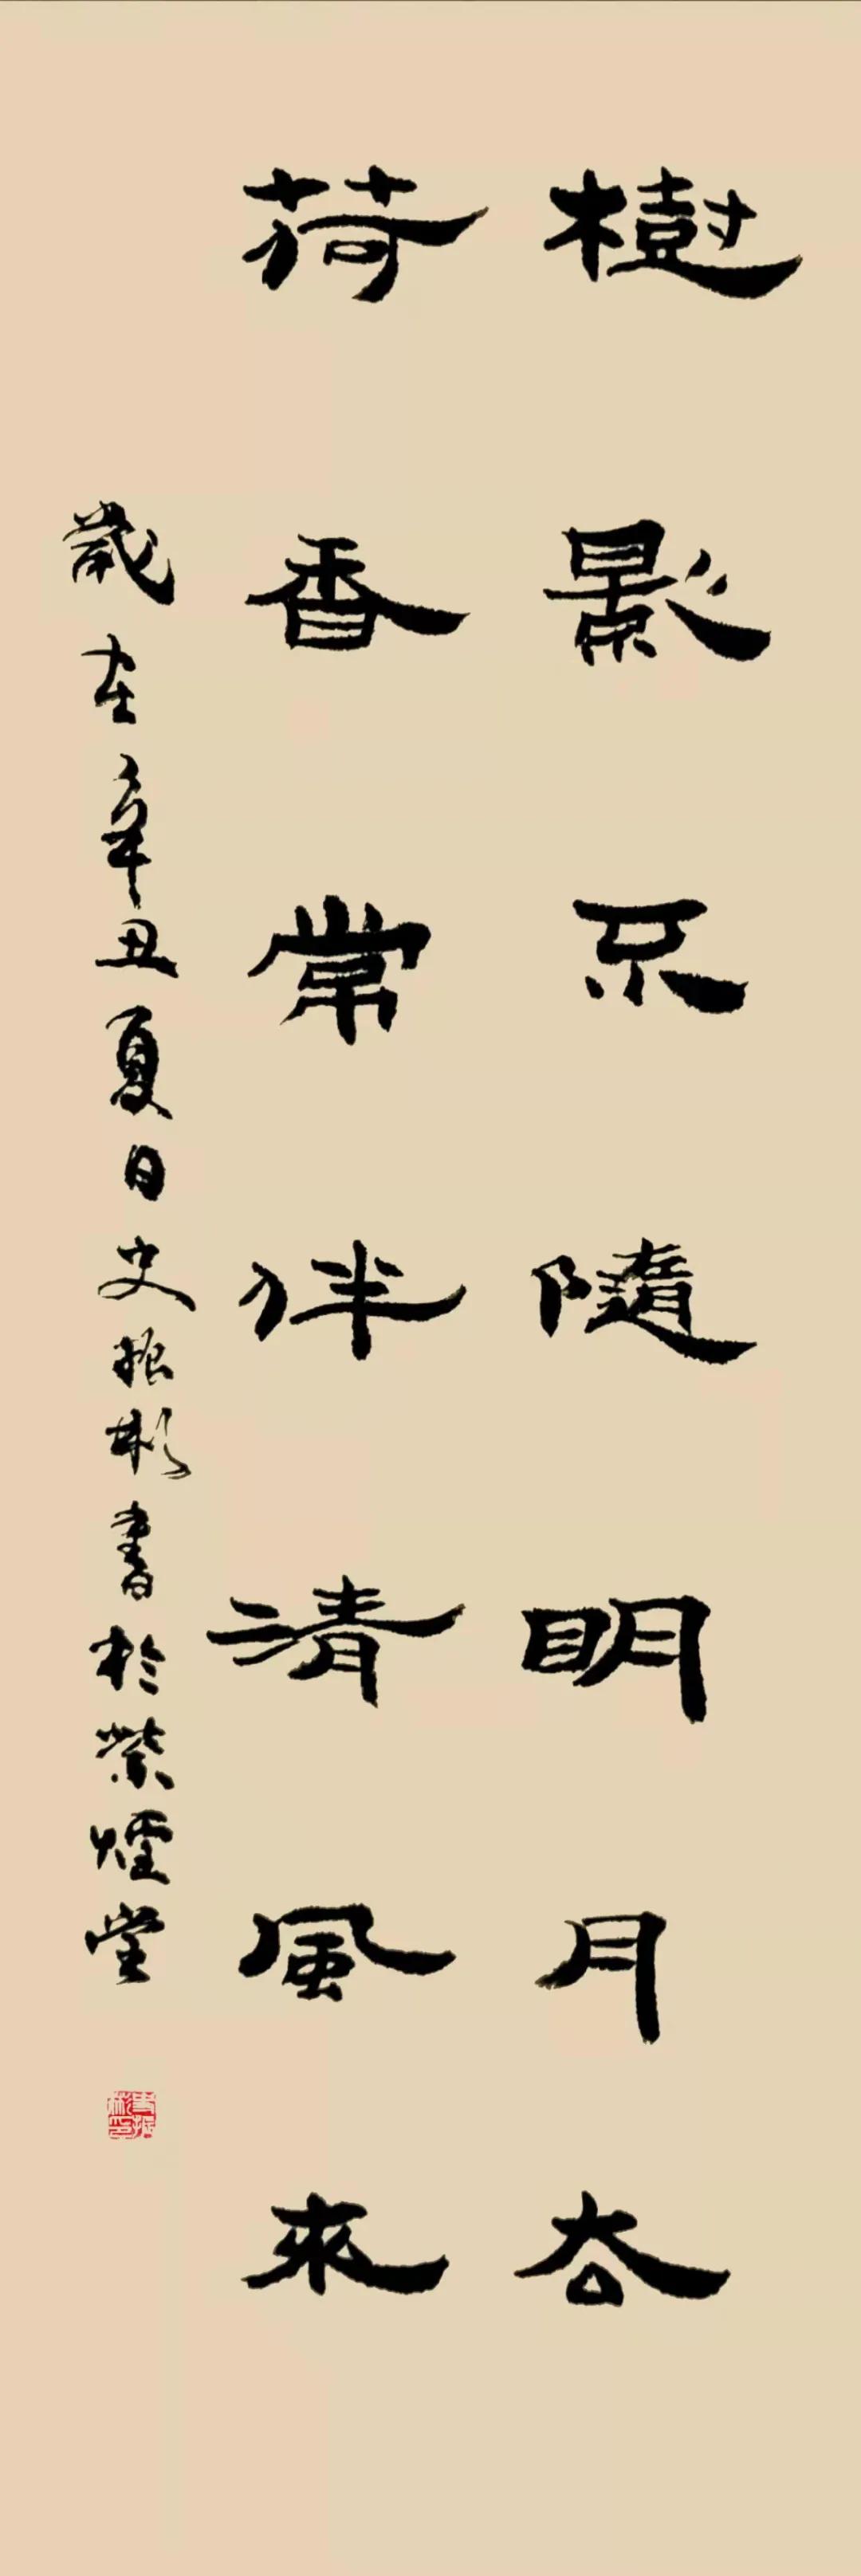 樹影不隨明月去
荷香常伴清風來
歲在辛丑夏日史振彬書於紫煙堂
史振彬印